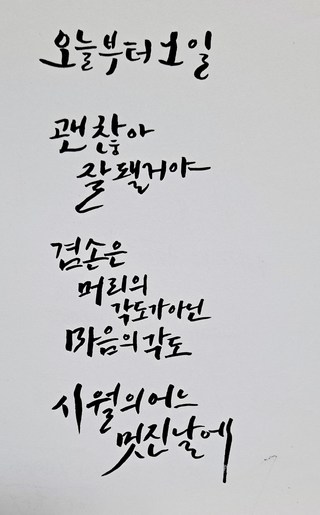 오늘부터 1일
괜찮아
잘 될거야
겸손은
머리의
각도가 아닌
마음의 각도
시월의 어느
멋진 날에